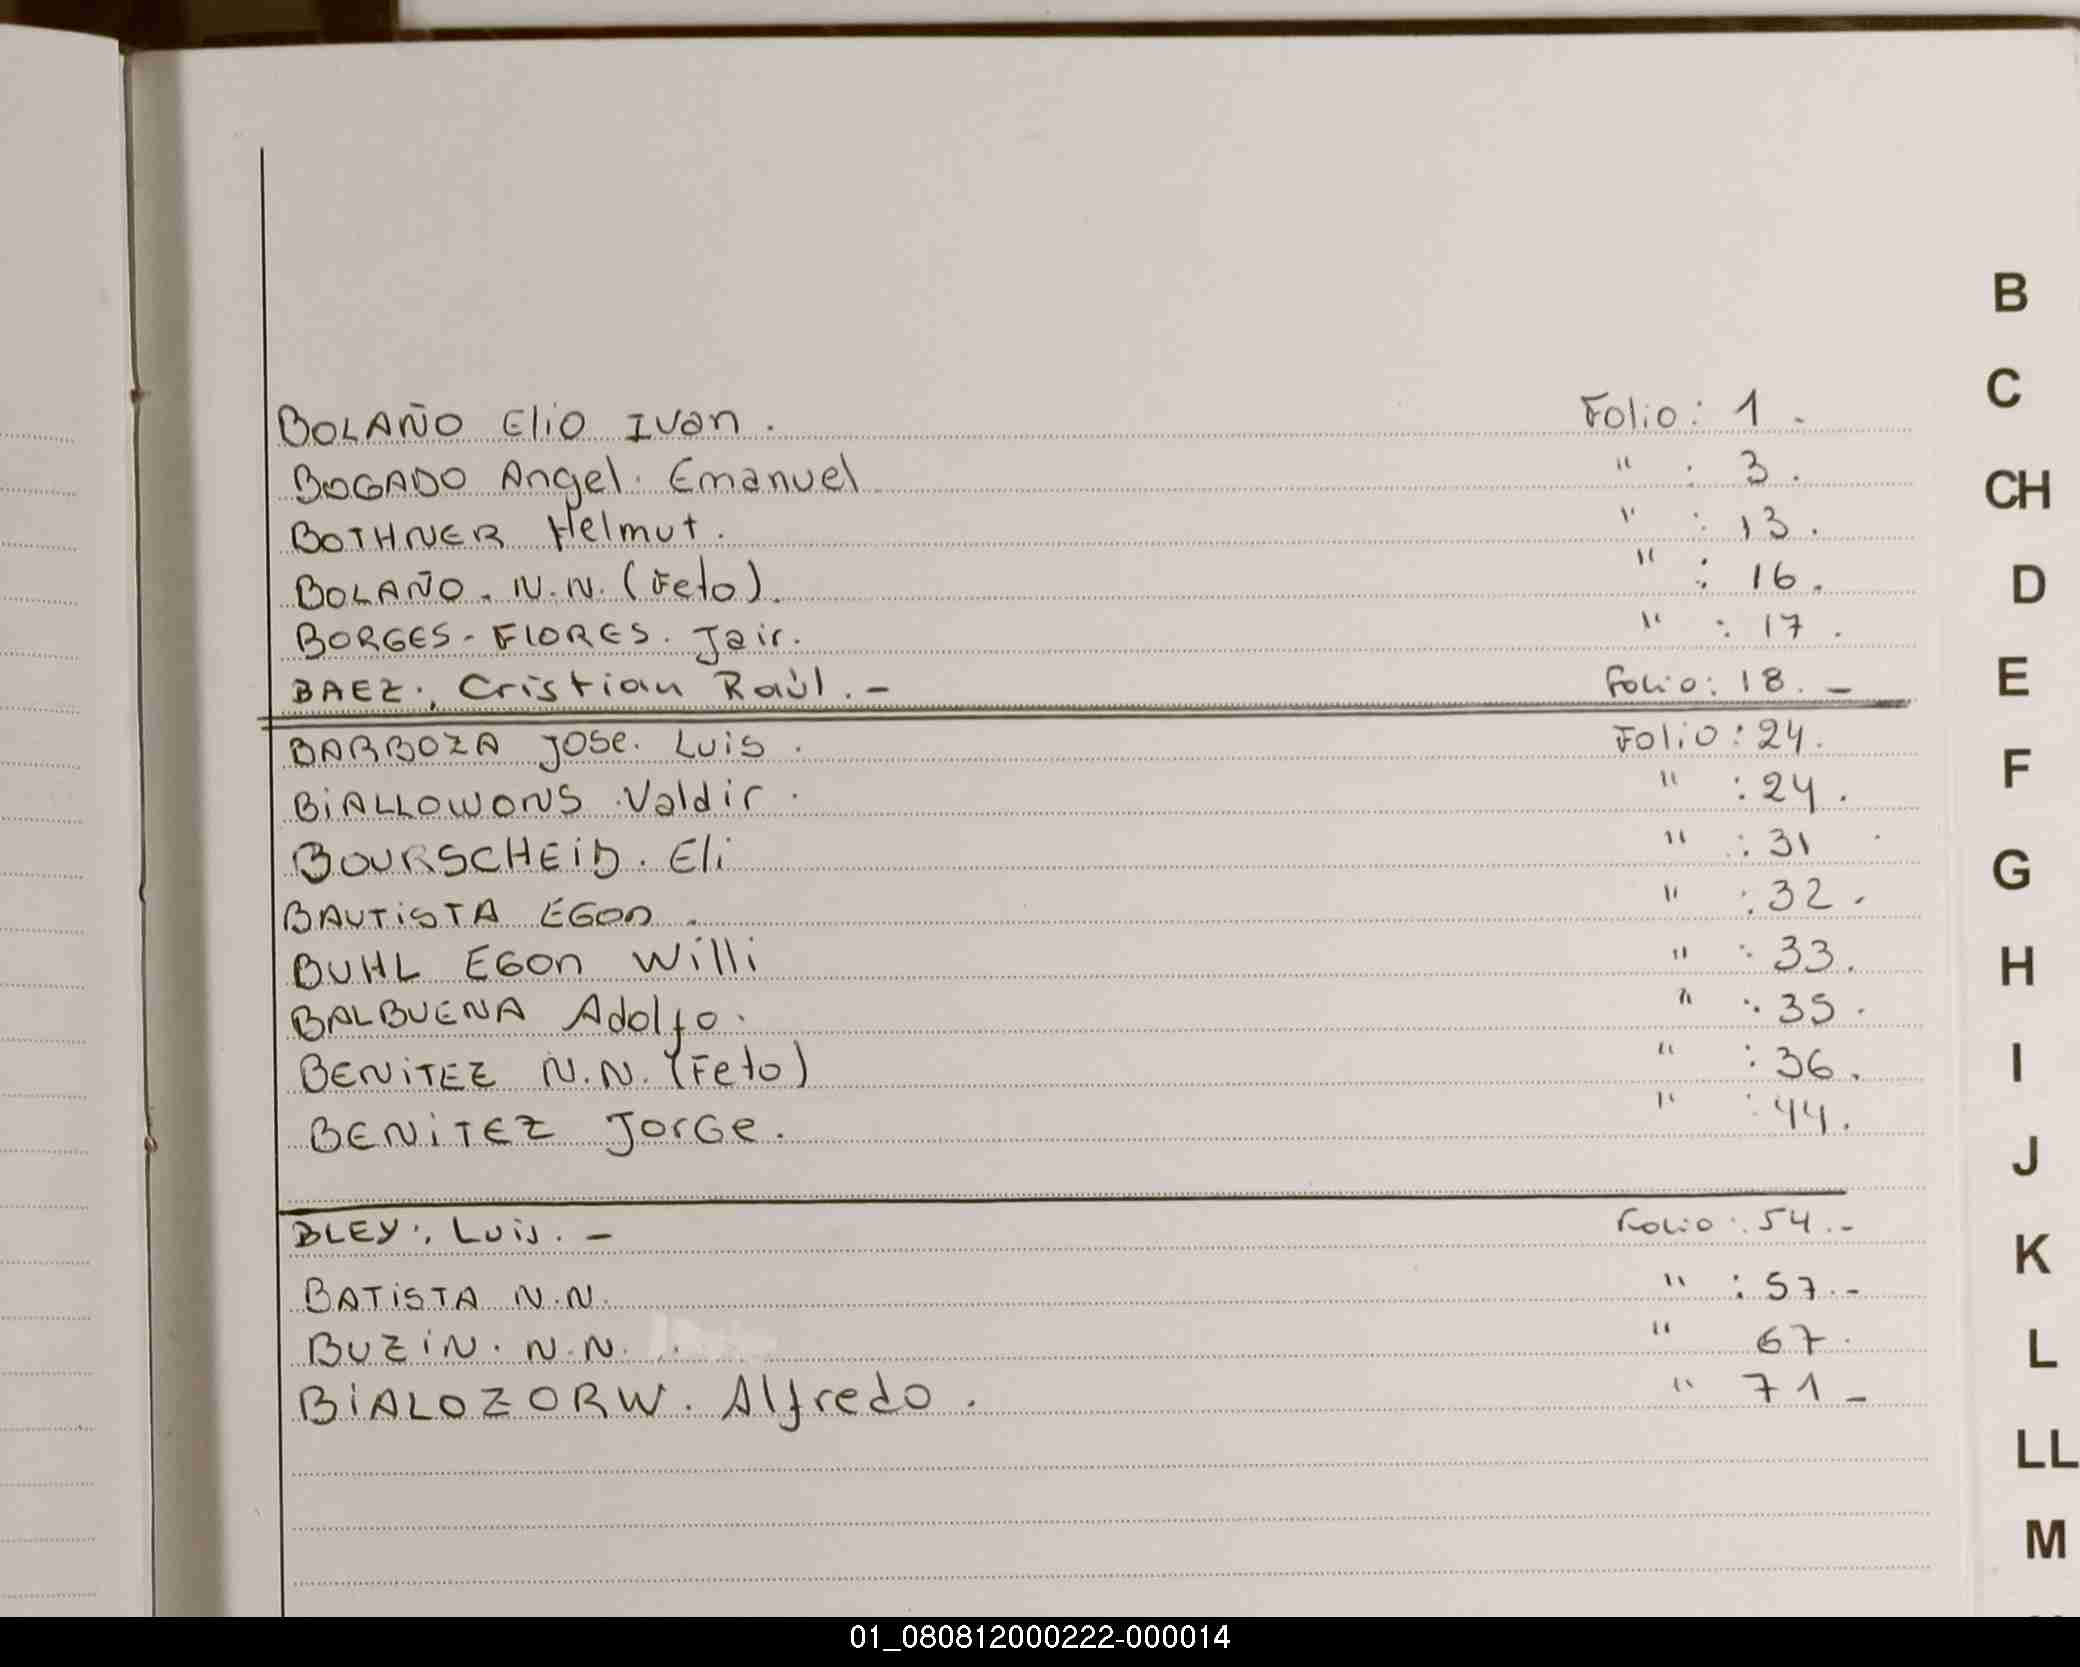 BOLAÑO Elio Ivan. Folio: 1.
BOGADO Angel. Emanuel " : 3.
BOTHNER Helmut. " : 13.
BOLAÑO. N.N. (Feto). " : 16.
BORGES-FLORES. Jair. " : 17.
BAEZ:, Cristian Raúl.- Folio: 18.-
BARBOZA JOSE. LUIS. Folio: 24.
BiALLOWONS. Valdir. " : 24.
BOURSCHEiD. Eli " : 31
BAUTiSTA EGON. " : 32.
BUHL EGON Willi " : 33.
BALBUENA Adolfo. " : 35.
BENiTEZ N.N. (Feto) " : 36.
BENiTEZ JorGe. " : 44.
BLEY:, Luis.- Folio: 54.-
BATiSTA N.N. " : 57.-
BUZiN. N.N. " 67.
BiALOZORW. Alfredo. " 71-
B
C
CH
D
E
F
G
H
I
J
K
L
LL
M
01_080812000222-000014